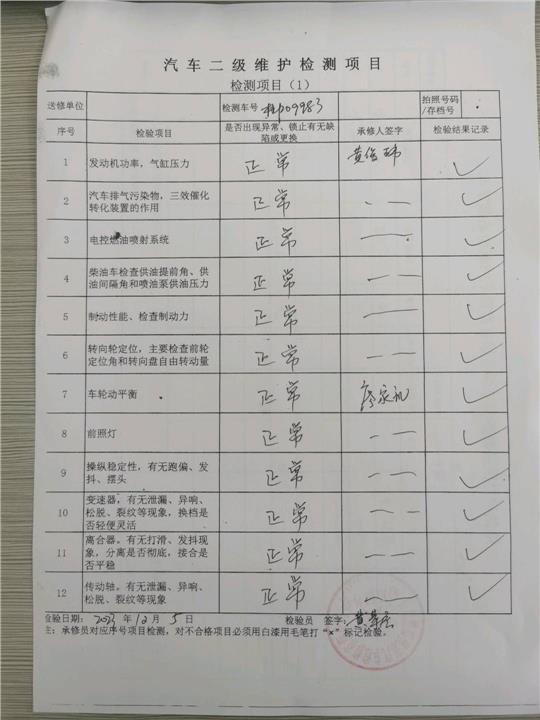 汽车二级维护检测项目
检测项目（1）
送修单位 检测车号 拍照号码/存档号
序号 检验项目 是否出现异常、锁止有无缺陷或更换 承修人签字 检验结果记录
1 发动机功率，气缸压力 正常 ✓
2 汽车排气污染物，三效催化转化装置的作用 正常 ✓
3 电控燃油喷射系统 正常 ✓
4 柴油车检查供油提前角、供油间隔角和喷油泵供油压力 正常 ✓
5 制动性能、检查制动力 正常 ✓
6 转向轮定位，主要检查前轮定位角和转向盘自由转动量 正常 ✓
7 车轮动平衡 正常 ✓
8 前照灯 正常 ✓
9 操纵稳定性，有无跑偏、发抖、摆头 正常 ✓
10 变速器。有无泄漏、异响、松脱、裂纹等现象，换档是否轻便灵活 正常 ✓
11 离合器。有无打滑、发抖现象，分离是否彻底，接合是否平稳 正常 ✓
12 传动轴。有无泄漏、异响、松脱、裂纹等现象 正常 ✓
检验日期：2023年12月5日 检验员 签字：
注：承修员对应序号项目检测，对不合格项目必须用白漆用毛笔打“×”标记检验。